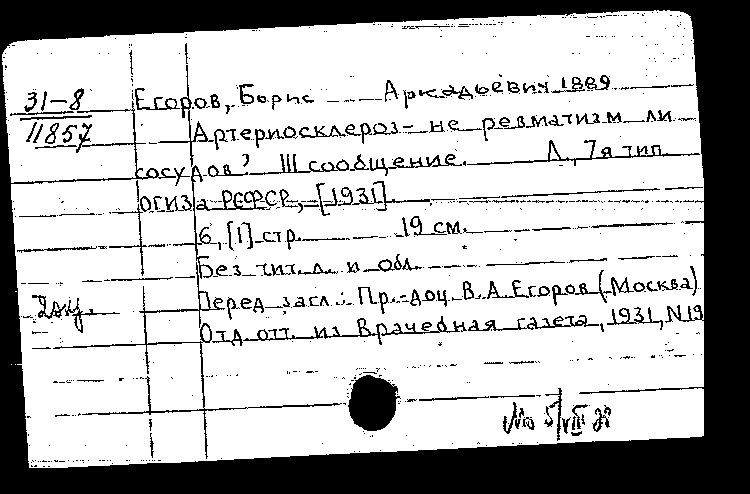 31-8
11857
Егоров, Борис Аркадьевич 1889
Артериосклероз - не ревматизм ли
сосудов? III сообщение. Л., 7я тип
огиза РСФСР, [1931].
6, [1] стр. 19 см.
Без тит. л. и обл.
Перед загл.: Пр.-доц. В.А. Егоров (Москва)
2экз.
Отд. отт. из Врачебная газета, 1931, N19
5/VIII